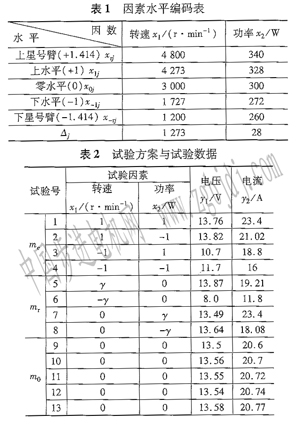 表 1 因素水平编码表
因 数
水 平 转速 x₁/(r·min⁻¹) 功率 x₂/W
上星号臂(+1.414) 4 800 340
上水平(+1) x₁ⱼ 4 273 328
零水平(0)x₀ⱼ 3 000 300
下水平(−1)x₋₁ⱼ 1 727 272
下星号臂(−1.414) 1 200 260
Δⱼ 1 273 28
表 2 试验方案与试验数据
试验号 试验因素 电压 电流
转速 功率 y₁/V y₂/A
x₁/(r·min⁻¹) x₂/W
1 1 1 13.76 23.4
2 1 −1 13.82 21.02
3 −1 1 10.7 18.8
4 −1 −1 11.7 16
5 γ 0 13.87 19.21
6 −γ 0 8.0 11.8
7 0 γ 13.49 23.4
8 0 −γ 13.64 18.08
m₀ 9 0 0 13.5 20.6
10 0 0 13.56 20.7
11 0 0 13.55 20.72
12 0 0 13.54 20.74
13 0 0 13.58 20.77